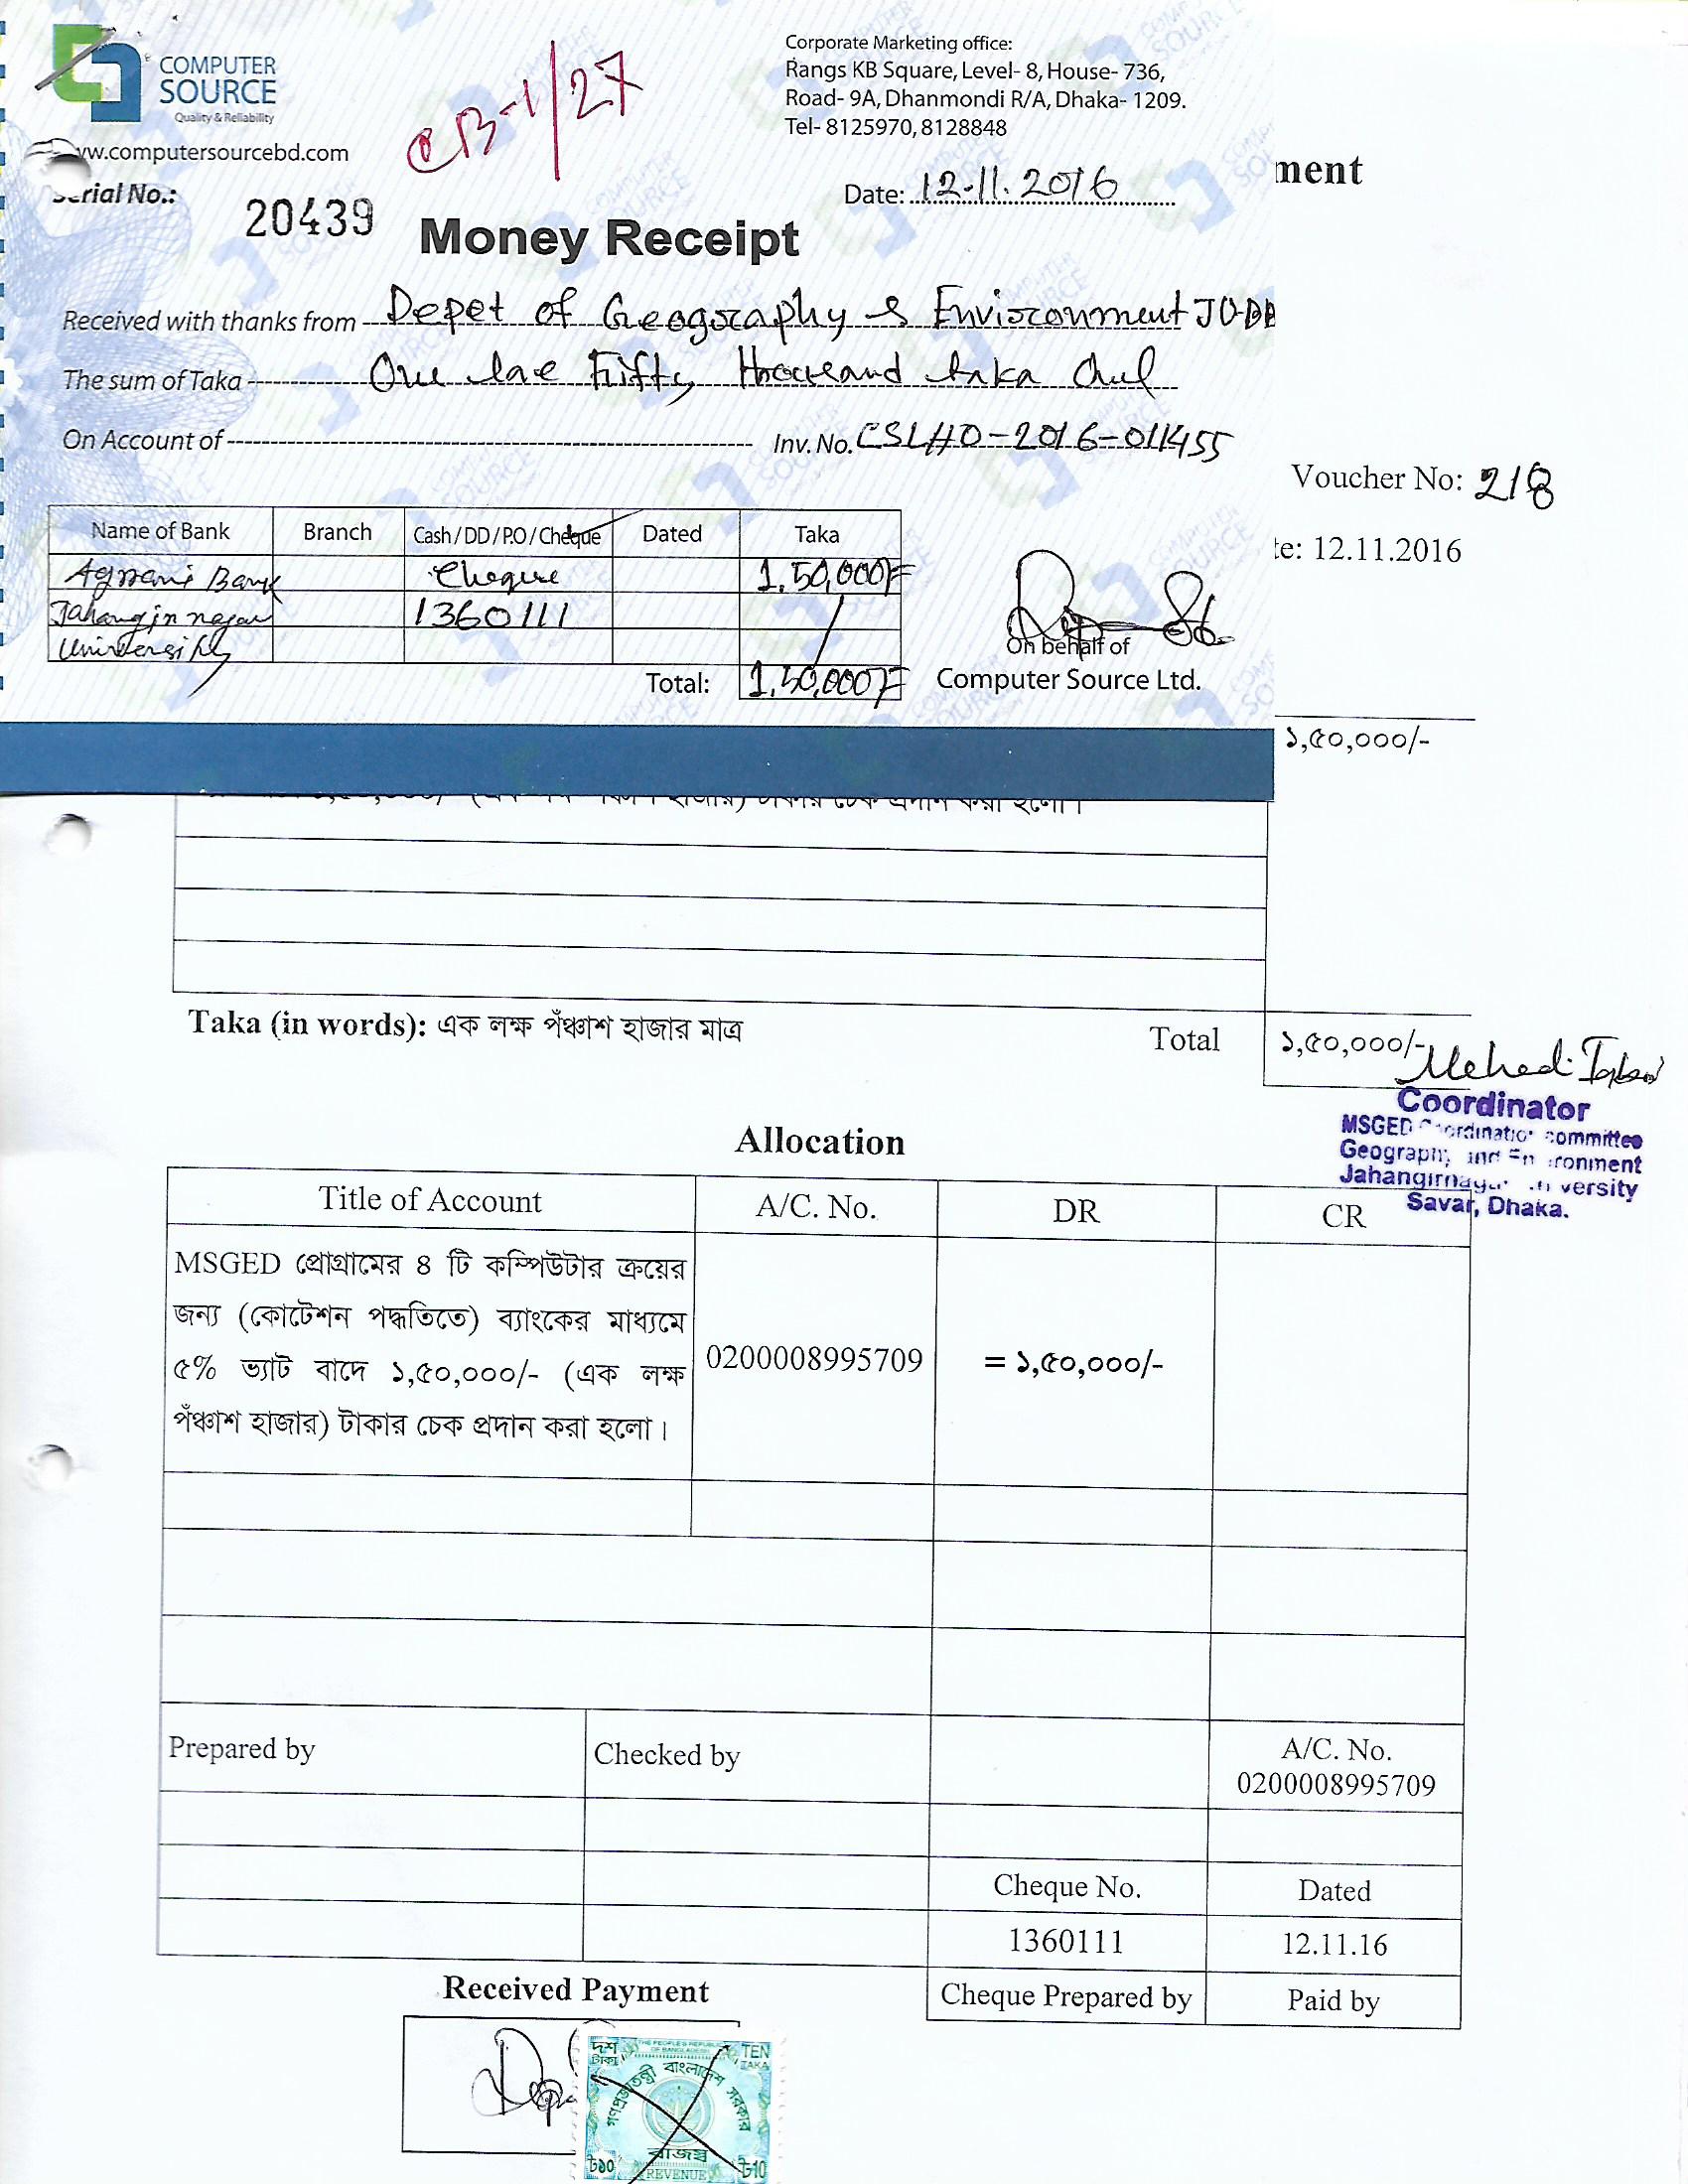 COMPUTER
SOURCE
Quality & Reliability
ww.computersourcebd.com
CB-1/27
Corporate Marketing office:
Rangs KB Square, Level- 8, House- 736,
Road- 9A, Dhanmondi R/A, Dhaka- 1209.
Tel- 8125970, 8128848
Serial No.: 20439
Date: 12.11.2016
Money Receipt
Received with thanks from Depet of Geography & Environment
The sum of Taka One lac Fifty thousand taka
On Account of Inv. No. CSLHO-2016-011455
Name of Bank Branch Cash/DD/P.O/Cheque Dated Taka
Agrani Bank Cheque 1,50,000/=
Jahangirnagar 1360111
University
Total: 1,50,000/=
On behalf of
Computer Source Ltd.
ment
Voucher No: 218
te: 12.11.2016
১,৫০,০০০/-
হাজার) টাকার চেক প্রদান করা হলো।
Taka (in words): এক লক্ষ পঁঞ্চাশ হাজার মাত্র Total ১,৫০,০০০/-
Mehedi Iqbal
Coordinator
MSGED Coordination committee
Geography and Environment
Jahangirnagar University
Savar, Dhaka.
Allocation
Title of Account A/C. No. DR CR
MSGED প্রোগ্রামের ৪ টি কম্পিউটার ক্রয়ের
জন্য (কোটেশন পদ্ধতিতে) ব্যাংকের মাধ্যমে
৫% ভ্যাট বাদে ১,৫০,০০০/- (এক লক্ষ
পঁঞ্চাশ হাজার) টাকার চেক প্রদান করা হলো।
0200008995709 = ১,৫০,০০০/-
Prepared by Checked by A/C. No.
0200008995709
Cheque No. Dated
1360111 12.11.16
Cheque Prepared by Paid by
Received Payment
দশ টাকা TEN TAKA
THE PEOPLE'S REPUBLIC
OF BANGLADESH
গণপ্রজাতন্ত্রী বাংলাদেশ সরকার
রাজস্ব
৳১০ REVENUE ৳10